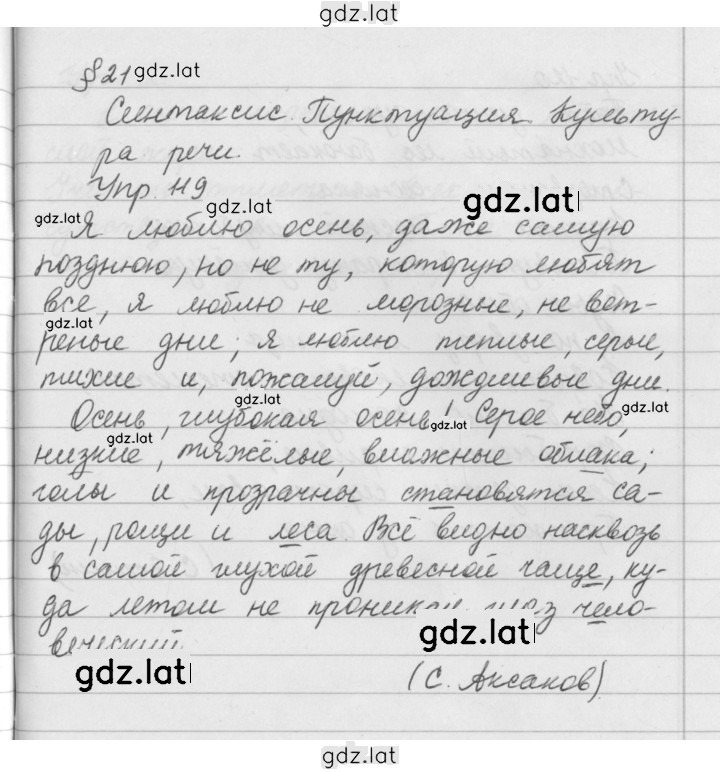 gdz.lat
§21 gdz.lat
Синтаксис. Пунктуация. Культу-
ра речи.
Упр. 119
gdz.lat
gdz.lat
Я люблю осень, даже самую
позднюю, но не ту, которую любят
все, я люблю не морозные, не вет-
gdz.lat
реные дни; я люблю теплые, серые,
тихие и, пожалуй, дождливые дни.
gdz.lat
Осень, глубокая осень! Серое небо,
gdz.lat
gdz.lat
gdz.lat
низкие, тяжёлые, влажные облака;
голы и прозрачны становятся са-
ды, рощи и леса Всё видно насквозь
в самой глухой древесной чаще, ку-
да летом не проникал глаз чело-
веческий.
gdz.lat
gdz.lat
(С. Аксаков)
gdz.lat